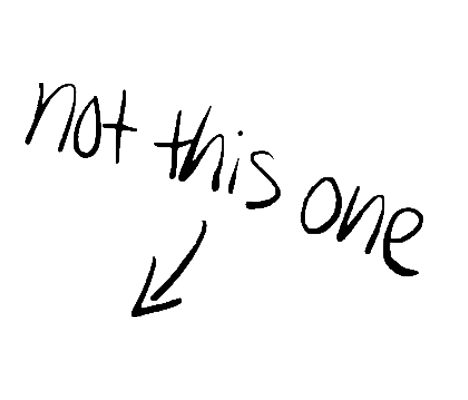 not this one